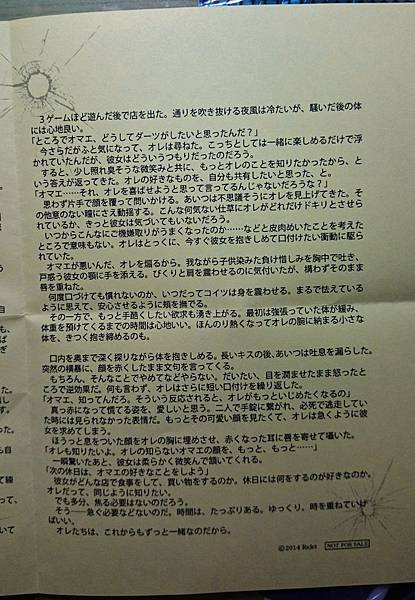 ３ゲームほど遊んだ後で店を出た。通りを吹き抜ける夜風は冷たいが、騒いだ後の体
には心地良い。
「ところでオマエ、どうしてダーツがしたいと思ったんだ？」
今さらだがふと気になって、オレは尋ねた。こっちとしては一緒に楽しめるだけで浮
かれていたんだが、彼女はどういうつもりだったのだろう。
すると、少し照れ臭そうな微笑みと共に、もっとオレのことを知りたかったから、と
いう答えが返ってきた。オレの好きなものを、自分も共有したいと思った、と。
「オマエ……それ、オレを喜ばせようと思って言ってるんじゃないだろうな？」
思わず片手で顔を覆って問いかける。あいつは不思議そうにオレを見上げてきた。そ
の他意のない瞳にさえ動揺する。こんな何気ない仕草にオレがどれだけドキリとさせら
れているか、きっと彼女は気づいてもいないだろう。
いつからこんなにご機嫌取りがうまくなったのか……などと皮肉めいたことを考えた
ところで意味もない。オレはとっくに、今すぐ彼女を抱きしめて口付けたい衝動に駆ら
れていた。
オマエが悪いんだ、オレを煽るから。我ながら子供染みた負け惜しみを胸中で吐き、
戸惑う彼女の顎に手を添える。ぴくりと肩を震わせるのに気付いたが、構わずそのまま
唇を重ねた。
何度口づけても慣れないのか、いつだってコイツは身を震わせる。まるで怯えている
ように思えて、安心させるように頬を撫でる。
その一方で、もっと手酷くしたい欲求も湧き上がる。最初は強張っていた体が緩み、
体重を預けてくるまでの時間は心地いい。ほんのり熱くなってオレの腕に納まる小さな
体を、きつく抱き締めるのも。
口内を奥まで深く探りながら体を抱きしめる。長いキスの後、あいつは吐息を漏らした。
突然の横暴に、顔を赤くしたまま文句を言ってくる。
もちろん、そんなことでやめてなどやらない。だいたい、目を潤ませたまま怒ったと
ころで逆効果だ。何も言わず、オレはさらに短い口付けを繰り返した。
「オマエ、知ってんだろ。そういう反応されると、オレがもっといじめたくなるの」
真っ赤になって慌てる姿を、愛しいと思う。二人で手錠に繋がれ、必死で逃走してい
た時には見られなかった表情だ。もっとその可愛い顔を見たくて、オレは急ぐように彼
女を求めてしまう。
ほうっと息をついた顔をオレの胸に埋めさせ、赤くなった耳に唇を寄せて囁いた。
「オレも知りたいよ。オレの知らないオマエの顔を、もっと、もっと……」
一瞬驚いたあと、彼女は柔らかく微笑んで頷いてくれる。
「次の休日は、オマエの好きなことをしよう」
彼女がどんな店で食事をして、買い物をするのか。休日には何をするのが好きなのか。
オレだって、同じように知りたい。
でも多分、焦る必要はないのだろう。
そう──急ぐ必要などないのだ。時間は、たっぷりある。ゆっくり、時を重ねていけ
ばいい。
オレたちは、これからもずっと一緒なのだから。
©2014 Rejet NOT FOR SALE